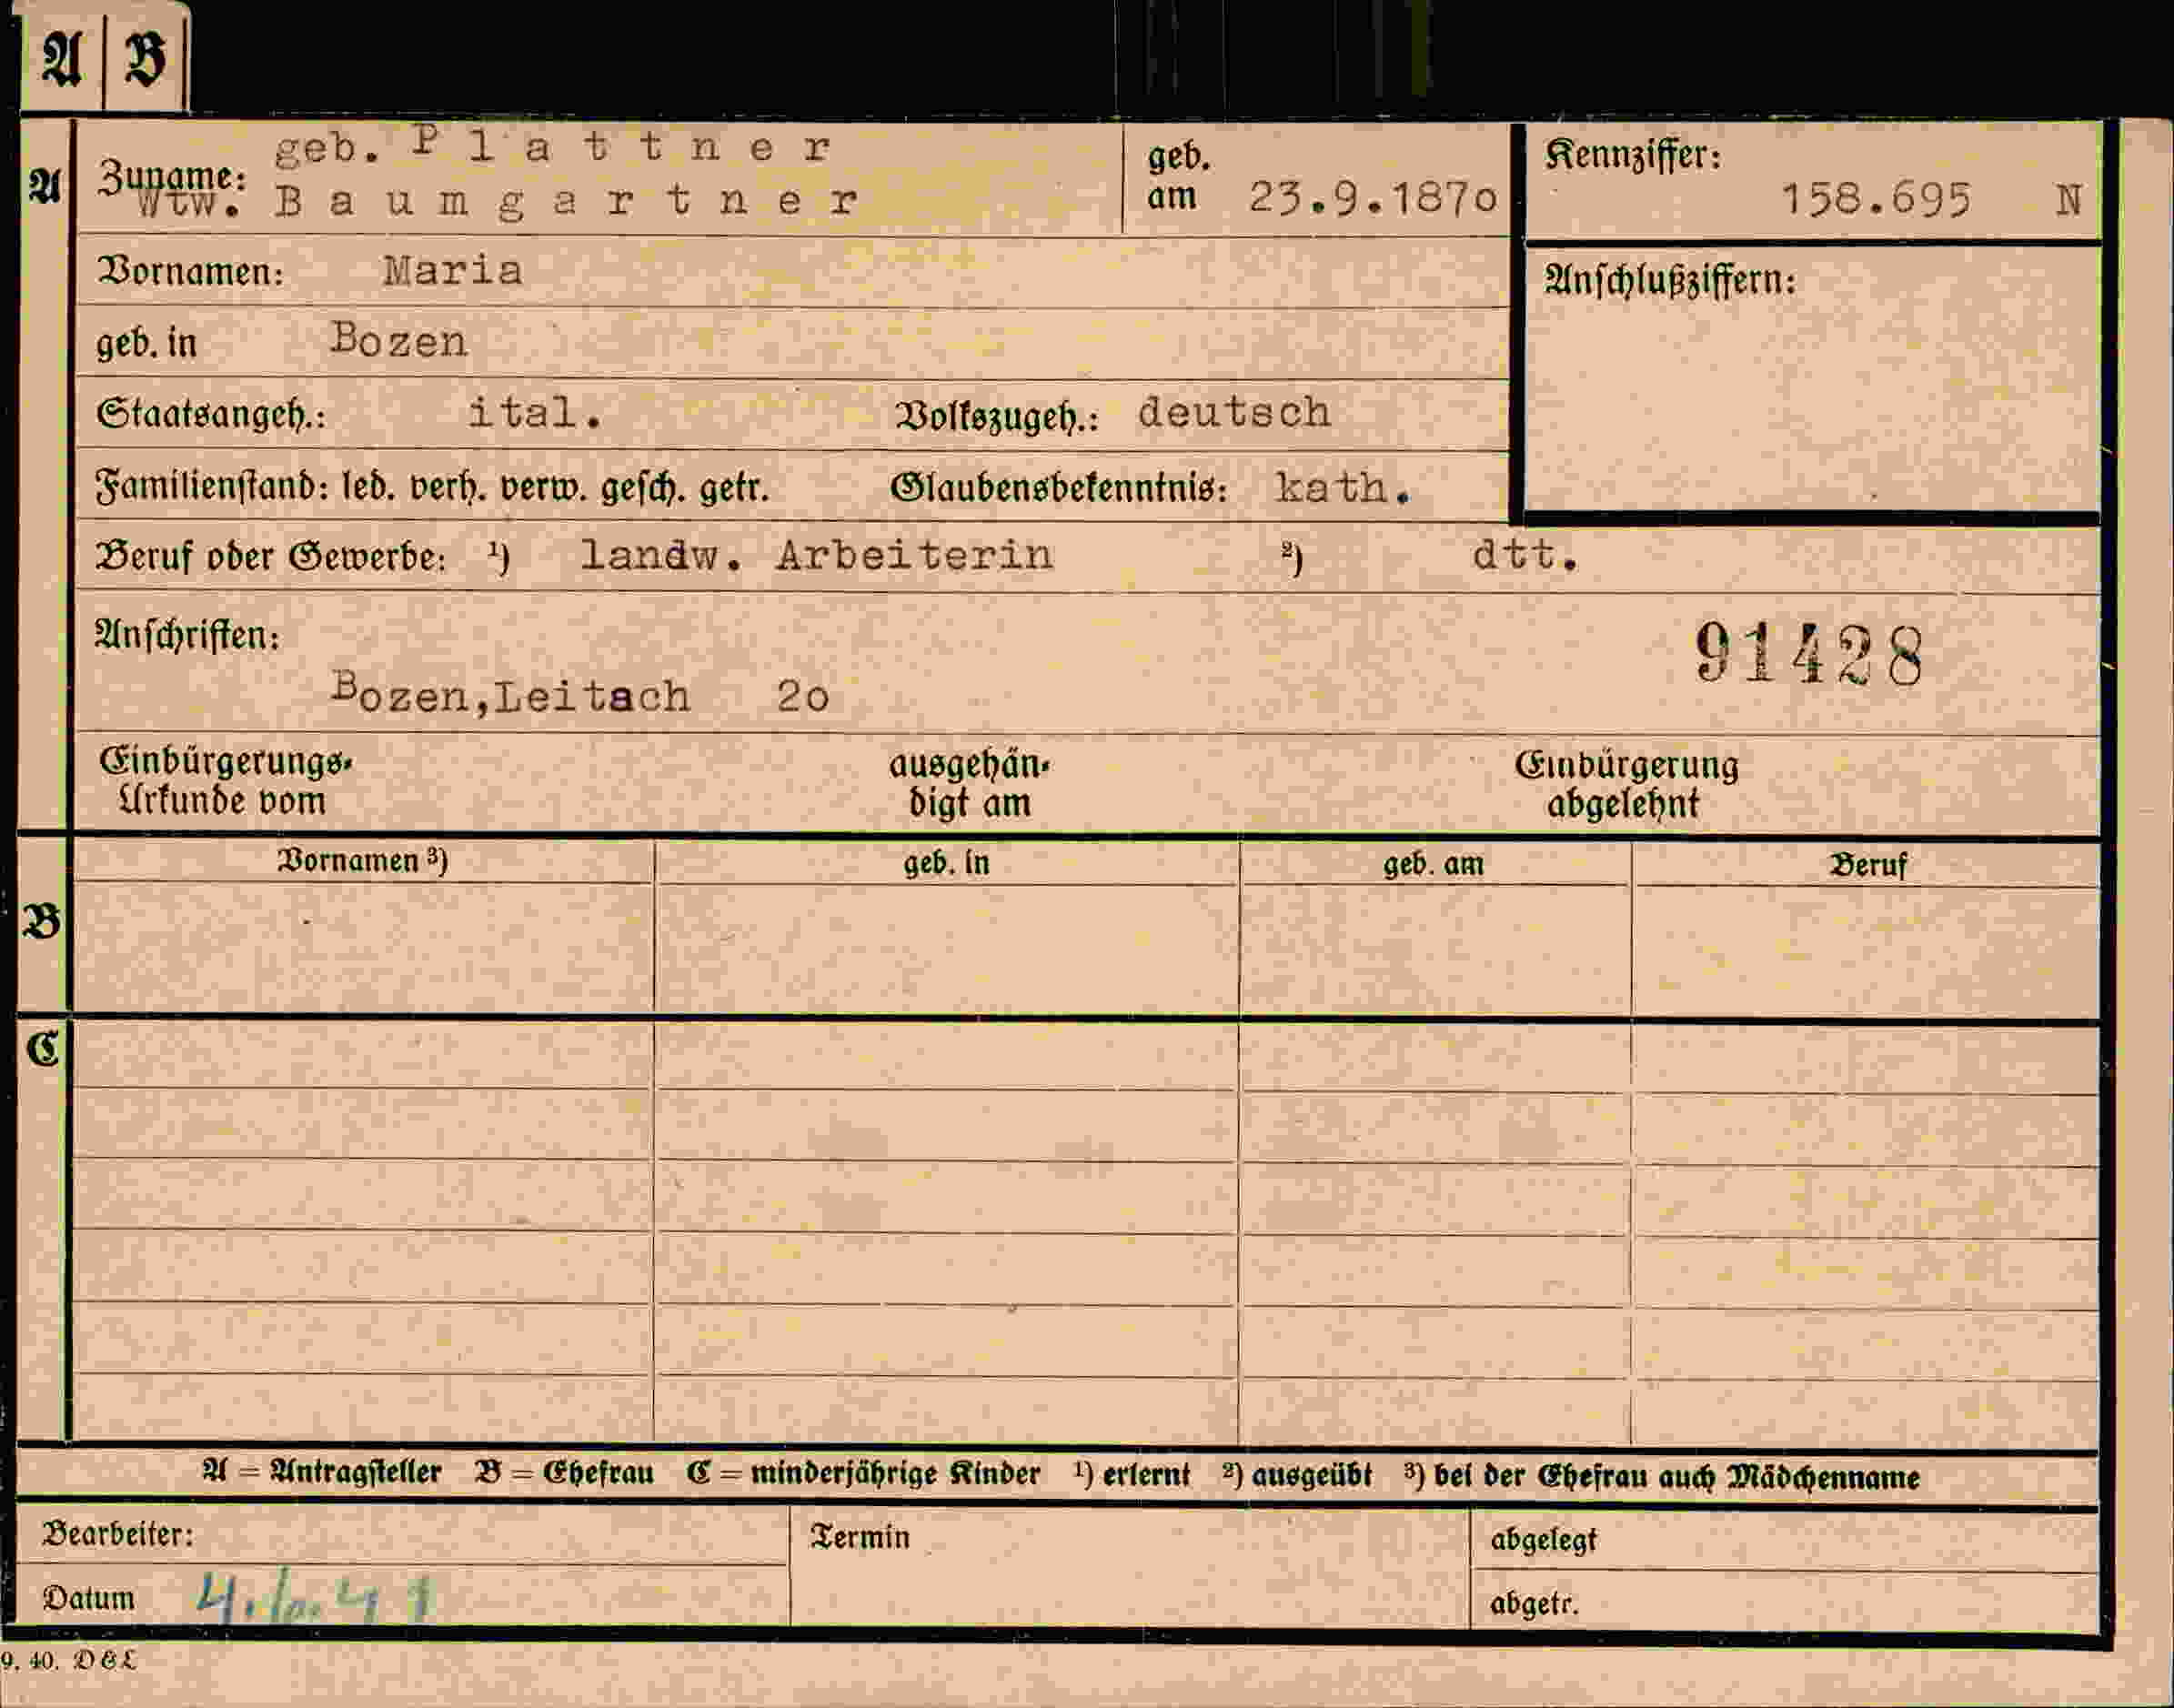 A B
A
geb. Plattner
Zuname:
Wtw. Baumgartner
geb. am 23.9.1870
Kennziffer:
158.695 N
Vornamen: Maria
Anschlußziffern:
geb. in Bozen
Staatsangeh.: ital. Volkszugeh.: deutsch
Familienstand: led. verh. verw. gesch. getr. Glaubensbekenntnis: kath.
Beruf oder Gewerbe: ¹) landw. Arbeiterin ²) dtt.
Anschriften:
91428
Bozen,Leitach 20
Einbürgerungs- ausgehän- Einbürgerung
Urkunde vom digt am abgelehnt
Vornamen ³) geb. in geb. am Beruf
B
C
A = Antragsteller B = Ehefrau C = minderjährige Kinder ¹) erlernt ²) ausgeübt ³) bei der Ehefrau auch Mädchenname
Bearbeiter: Termin abgelegt
Datum 4.10.41 abgetr.
9. 40. D&L